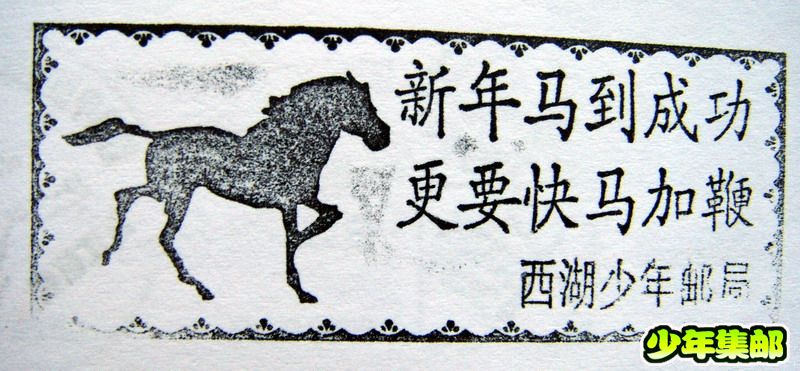 新年马到成功
更要快马加鞭
西湖少年邮局
少年集邮